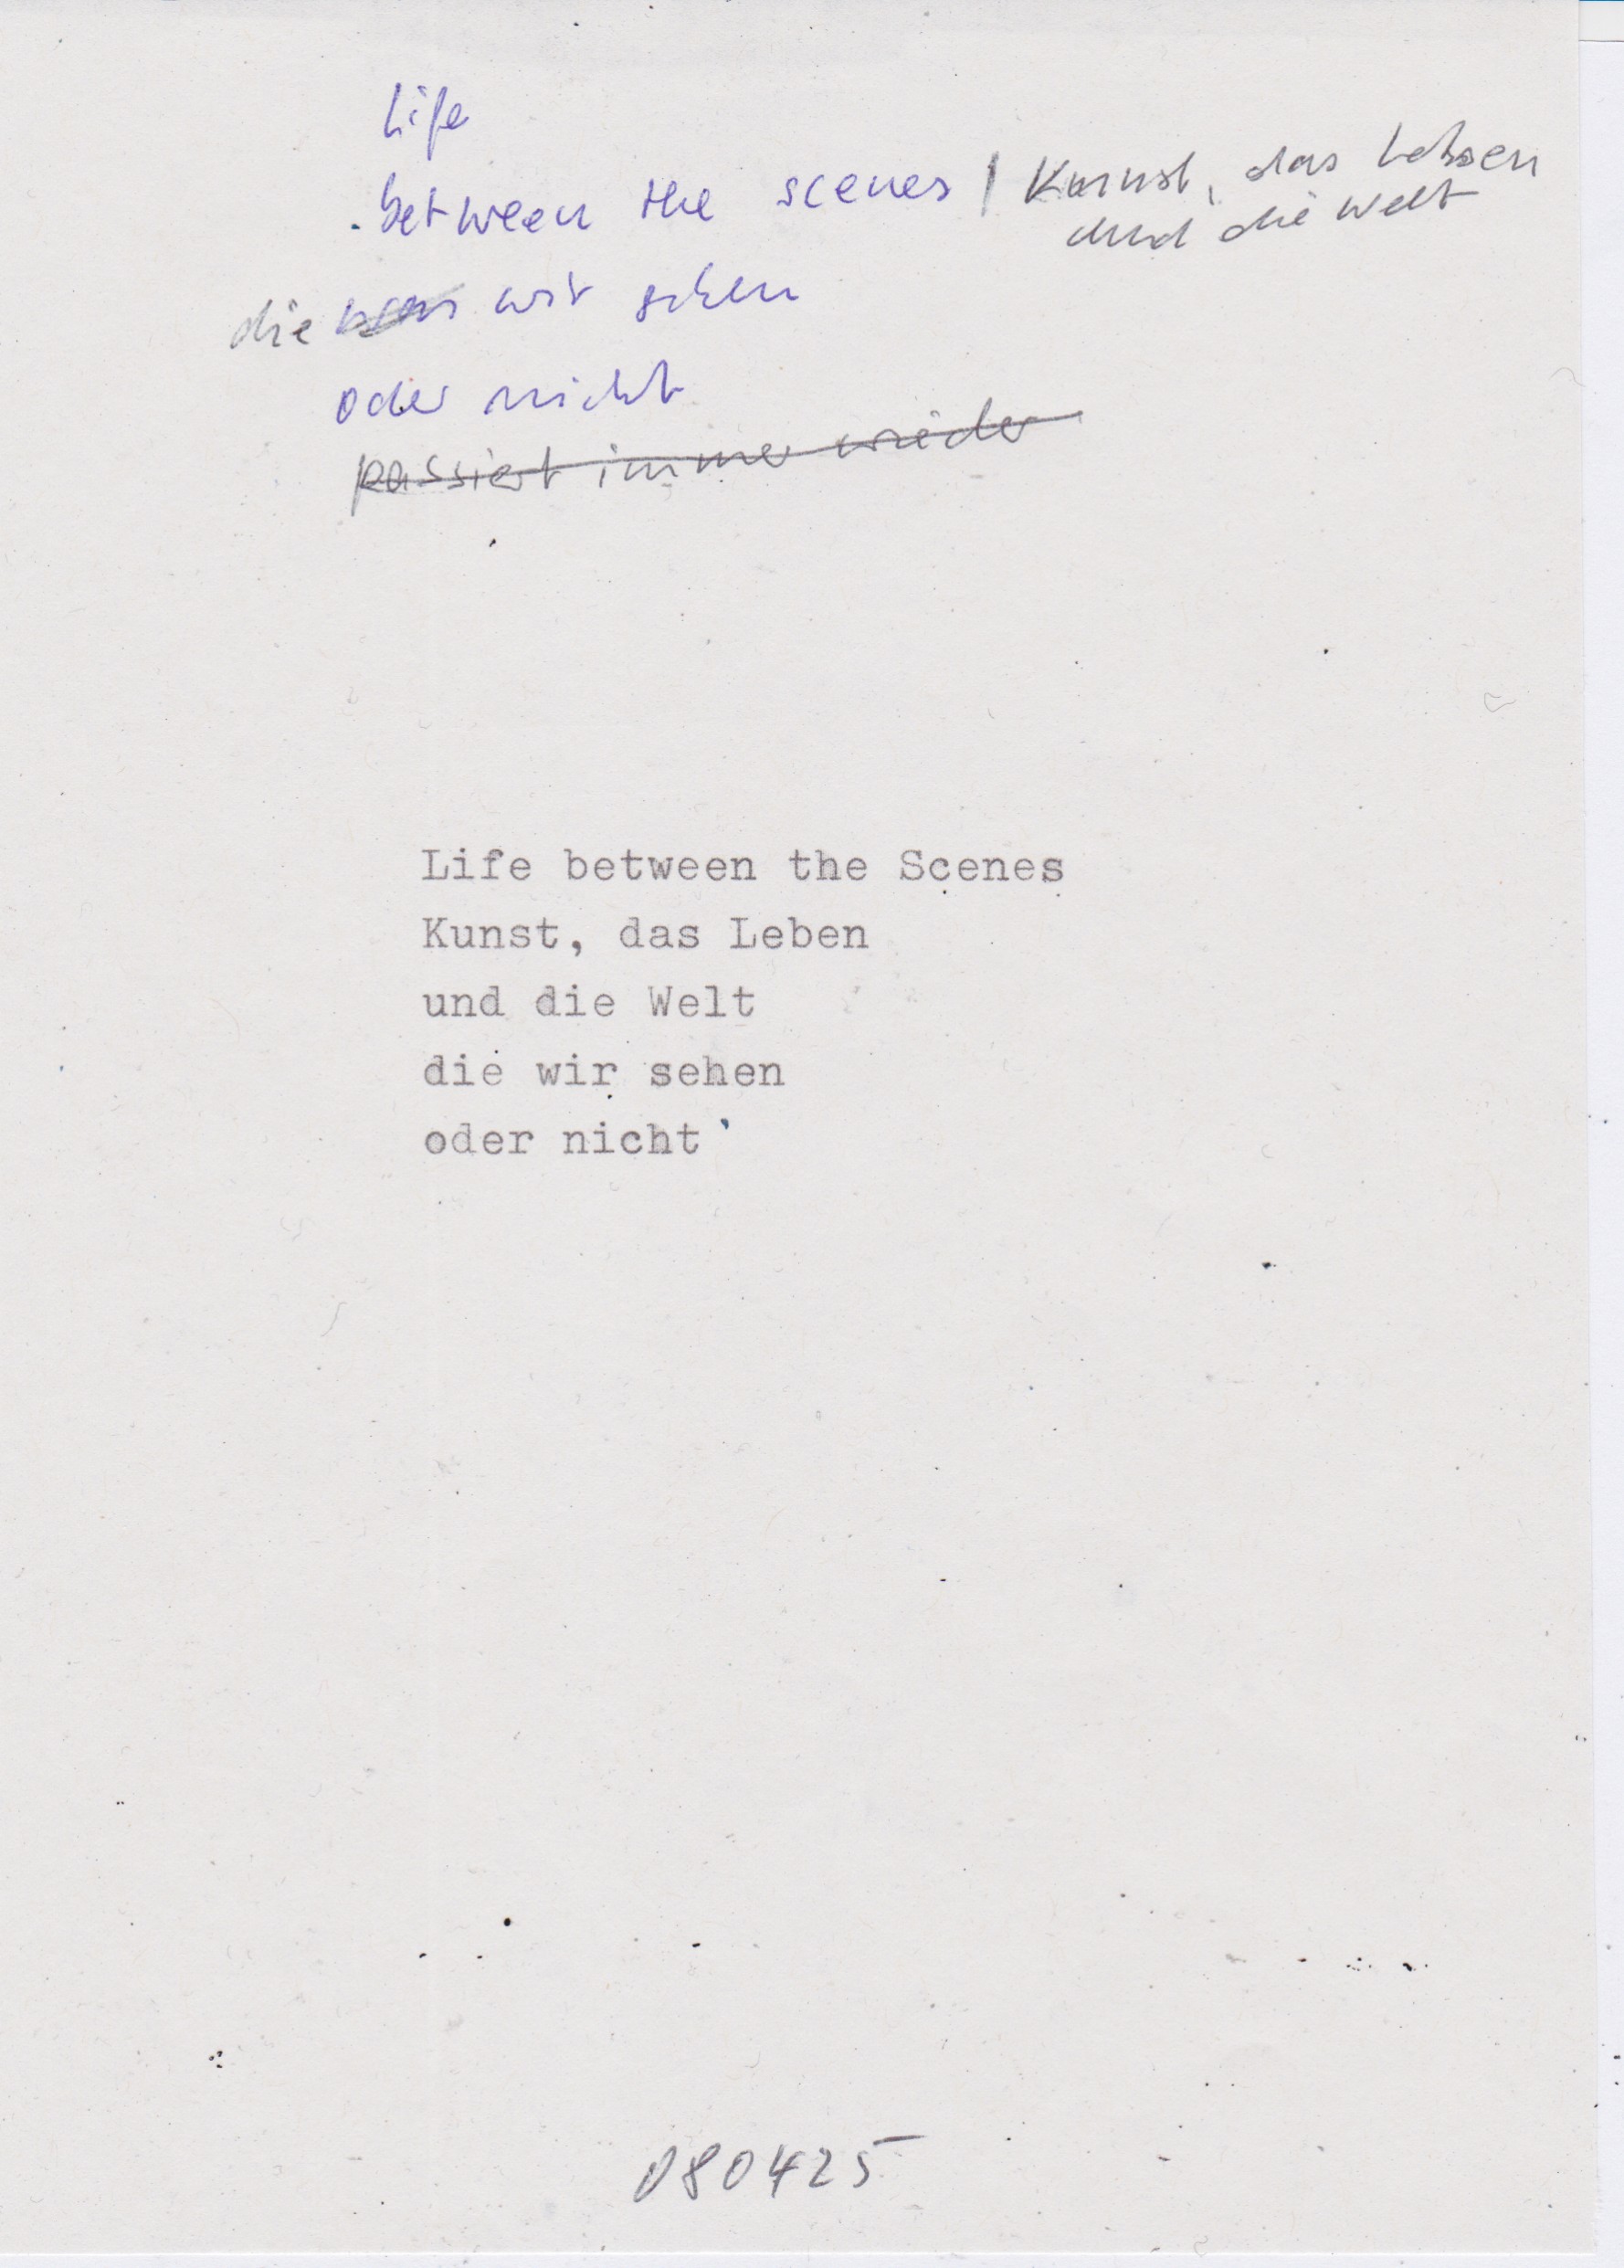 Life
between the scenes / Kunst, das Leben
und die Welt
die was wir sehen
oder nicht
passiert immer wieder
Life between the Scenes
Kunst, das Leben
und die Welt
die wir sehen
oder nicht
080425